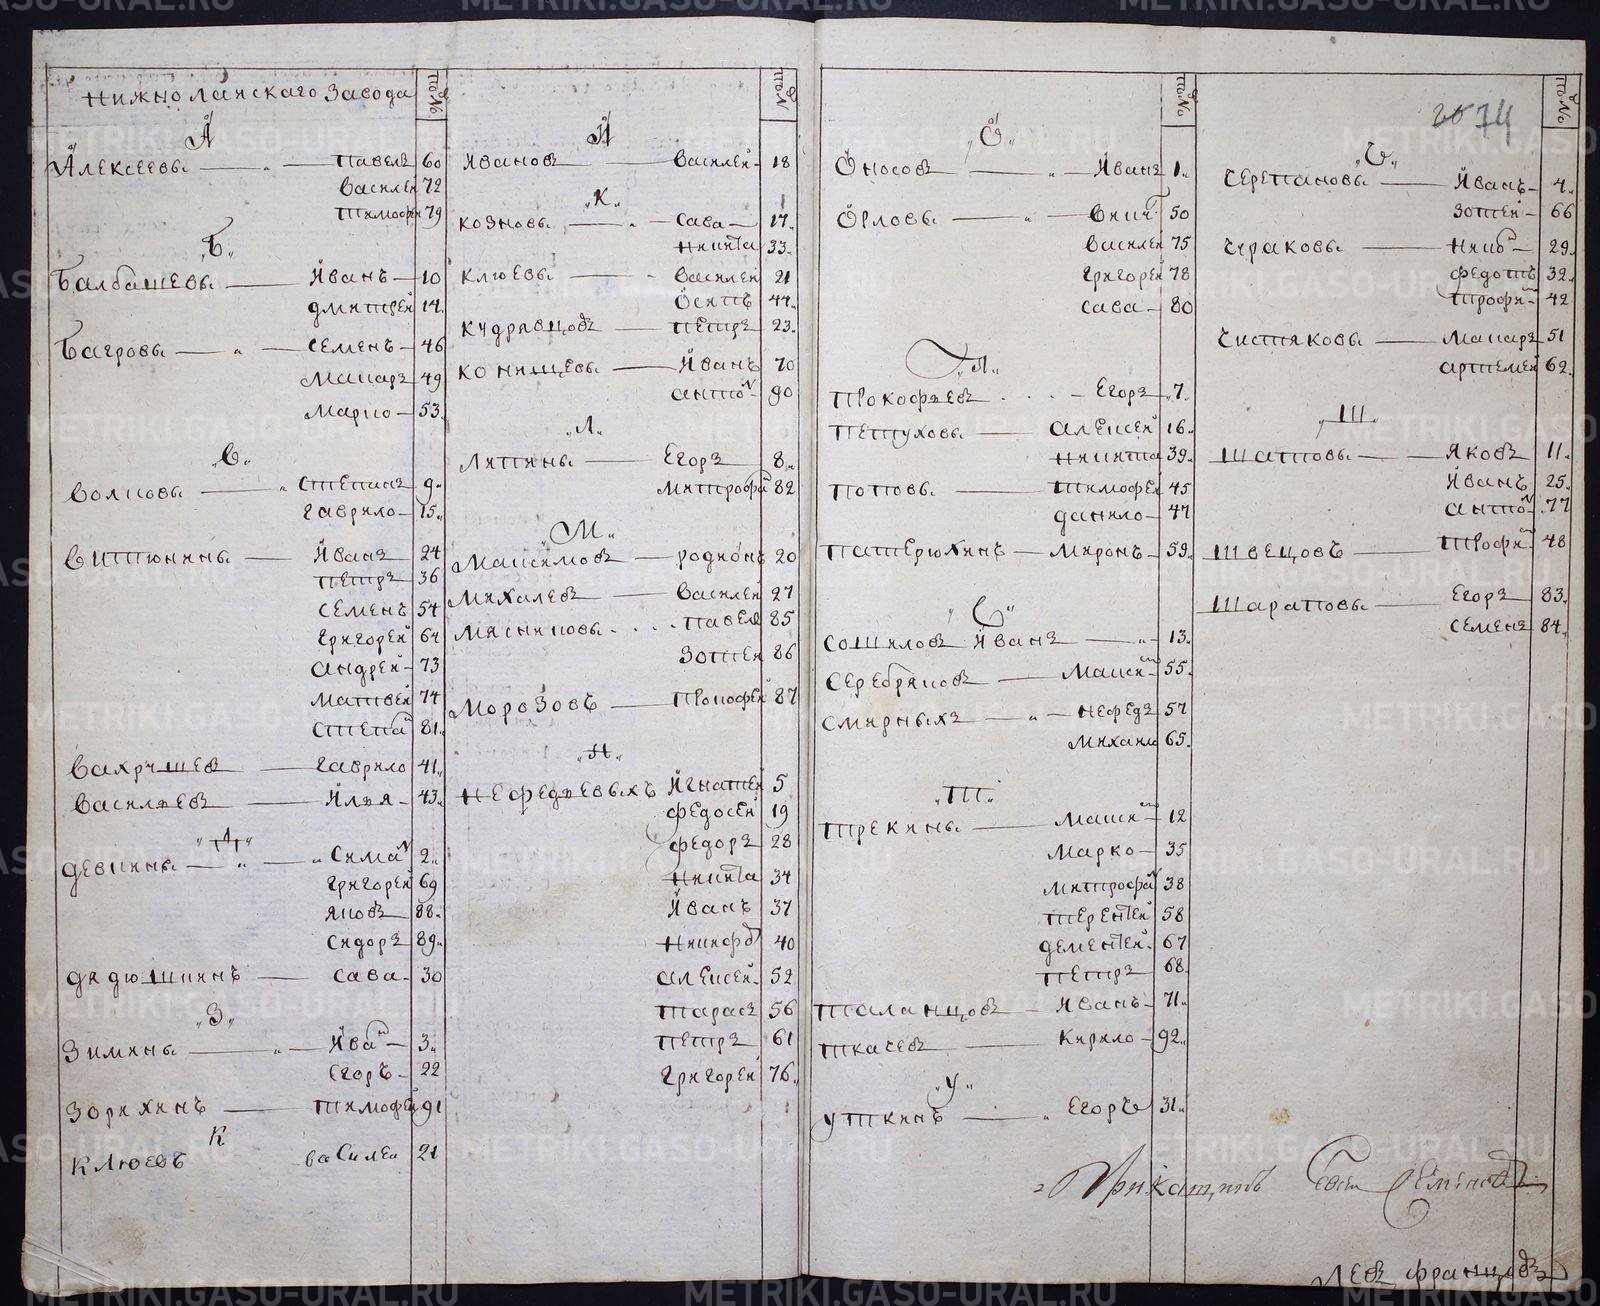 Нижно Лаискаго Завода
По №
А
Алексеевы — Павелъ 60
Василеи 72
Тимофеи 79
Б
Балбашевы — Иванъ — 10
Дмитреи 14
Багровы — Семенъ — 46
Макаръ 49
Марко — 53
В
Волковы — Степанъ 9
Гаврило — 15
Витюнины — Иванъ 24
Петръ 36
Семенъ 54
Григореи 64
Андреи — 73
Матвеи 74
Степа 81
Вахрушев — Гаврило 41
Василъевъ — Илъя — 43
Д
Девкины — Сима 2
Григореи 69
Яковъ 88
Сидоръ 89
Дядюшкинъ — Сава 30
З
Зимины — Ива — 3
Егоръ — 22
Зорихинъ — Тимофеи 91
К
Клюевъ Василеи 21
По №
И
Ивановъ — Василеи — 18
К
Козновы — Сава — 17
Никита 33
Клюевы — Василеи 21
Осипъ 44
Кудрявцовъ — Петръ 23
Конищевы — Иванъ 70
Анто 90
Л
Ляпины — Егоръ 8
Митрофа 82
М
Максимовъ — Родионъ 20
Михалевъ — Василеи 27
Мясниковы . . . Павелъ 85
Зотеи 86
Морозовъ — Прокофеи 87
Н
Нефедъевыхъ Игнатеи 5
Федосеи 19
Федоръ 28
Никита 34
Иванъ 37
Никифо 40
Алексеи 52
Тарасъ 56
Петръ 61
Григореи 76
По №
О
Оносовъ — Иванъ 1
Орловы — 50
Василеи 75
Григореи 78
Сава — 80
П
Прокофъевъ . . . — Егоръ 7
Петуховы — Алексеи 16
Никита 39
Поповы — Тимофеи 45
Данило — 47
Патерюхинъ — Миронъ — 59
С
Сошиловъ Иванъ — 13
Серебряковъ — Макси 55
Смирныхъ — Нефедъ 57
Михаила 65
Т
Трекины — Макси — 12
Марко — 35
Митрофа 38
Терентеи 58
Дементеи 67
Петръ 68
Таланцовъ — Иванъ — 71
Ткачевъ — Кирило — 92
У
Уткинъ — Егоръ 31
По №
74
Ч
Черепановы — Иванъ — 4
Зотеи — 66
Чураковы — — 29
Федотъ 32
Трофи — 42
Чистяковы — Макаръ 51
Артемеи 62
Ш
Шатовы — Яковъ 11
Иванъ 25
Анто 77
Швецовъ — Трофи 48
Шараповы — Егоръ 83
Семенъ 84
Прикащикъ Семеновъ
Левъ Францовъ
METRIKI.GASO-URAL.RU